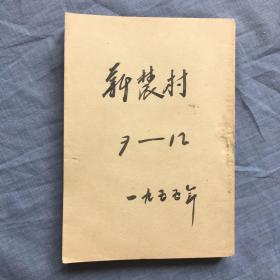 新农村
9—12
一九五五年